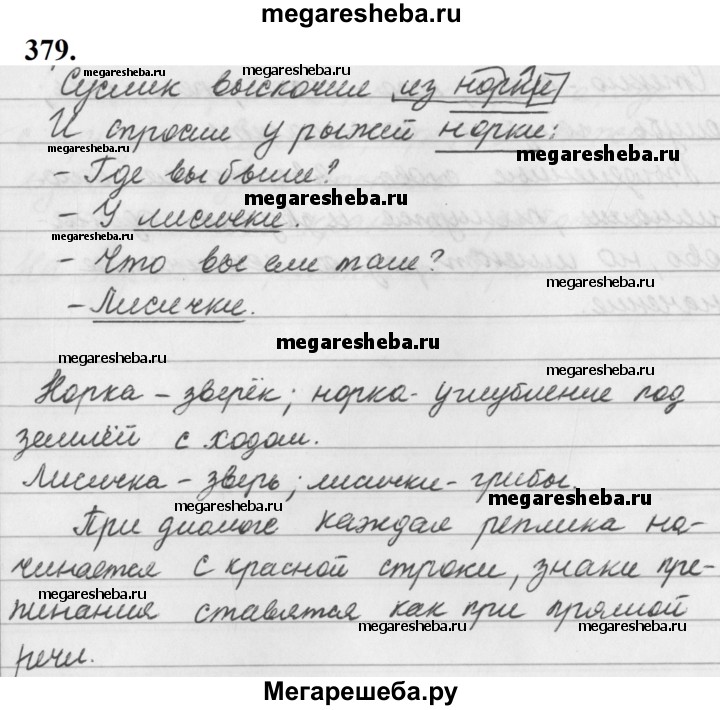 megaresheba.ru
379.
megaresheba.ru
Суслик выскочил из норки
И спросил у рыжей норки:
megaresheba.ru megaresheba.ru
– Где вы были?
megaresheba.ru
– У лисички.
megaresheba.ru
– Что вы ели там?
megaresheba.ru
– Лисички.
megaresheba.ru
megaresheba.ru
megaresheba.ru
Норка – зверёк; норка - углубление под
землёй с ходом.
Лисичка – зверь; лисички - грибы.
megaresheba.ru megaresheba.ru
При диалоге каждая реплика на-
чинается с красной строки, знаки пре-
megaresheba.ru
пинания ставятся как при прямой
megaresheba.ru megaresheba.ru
речи.
Мегарешеба.ру